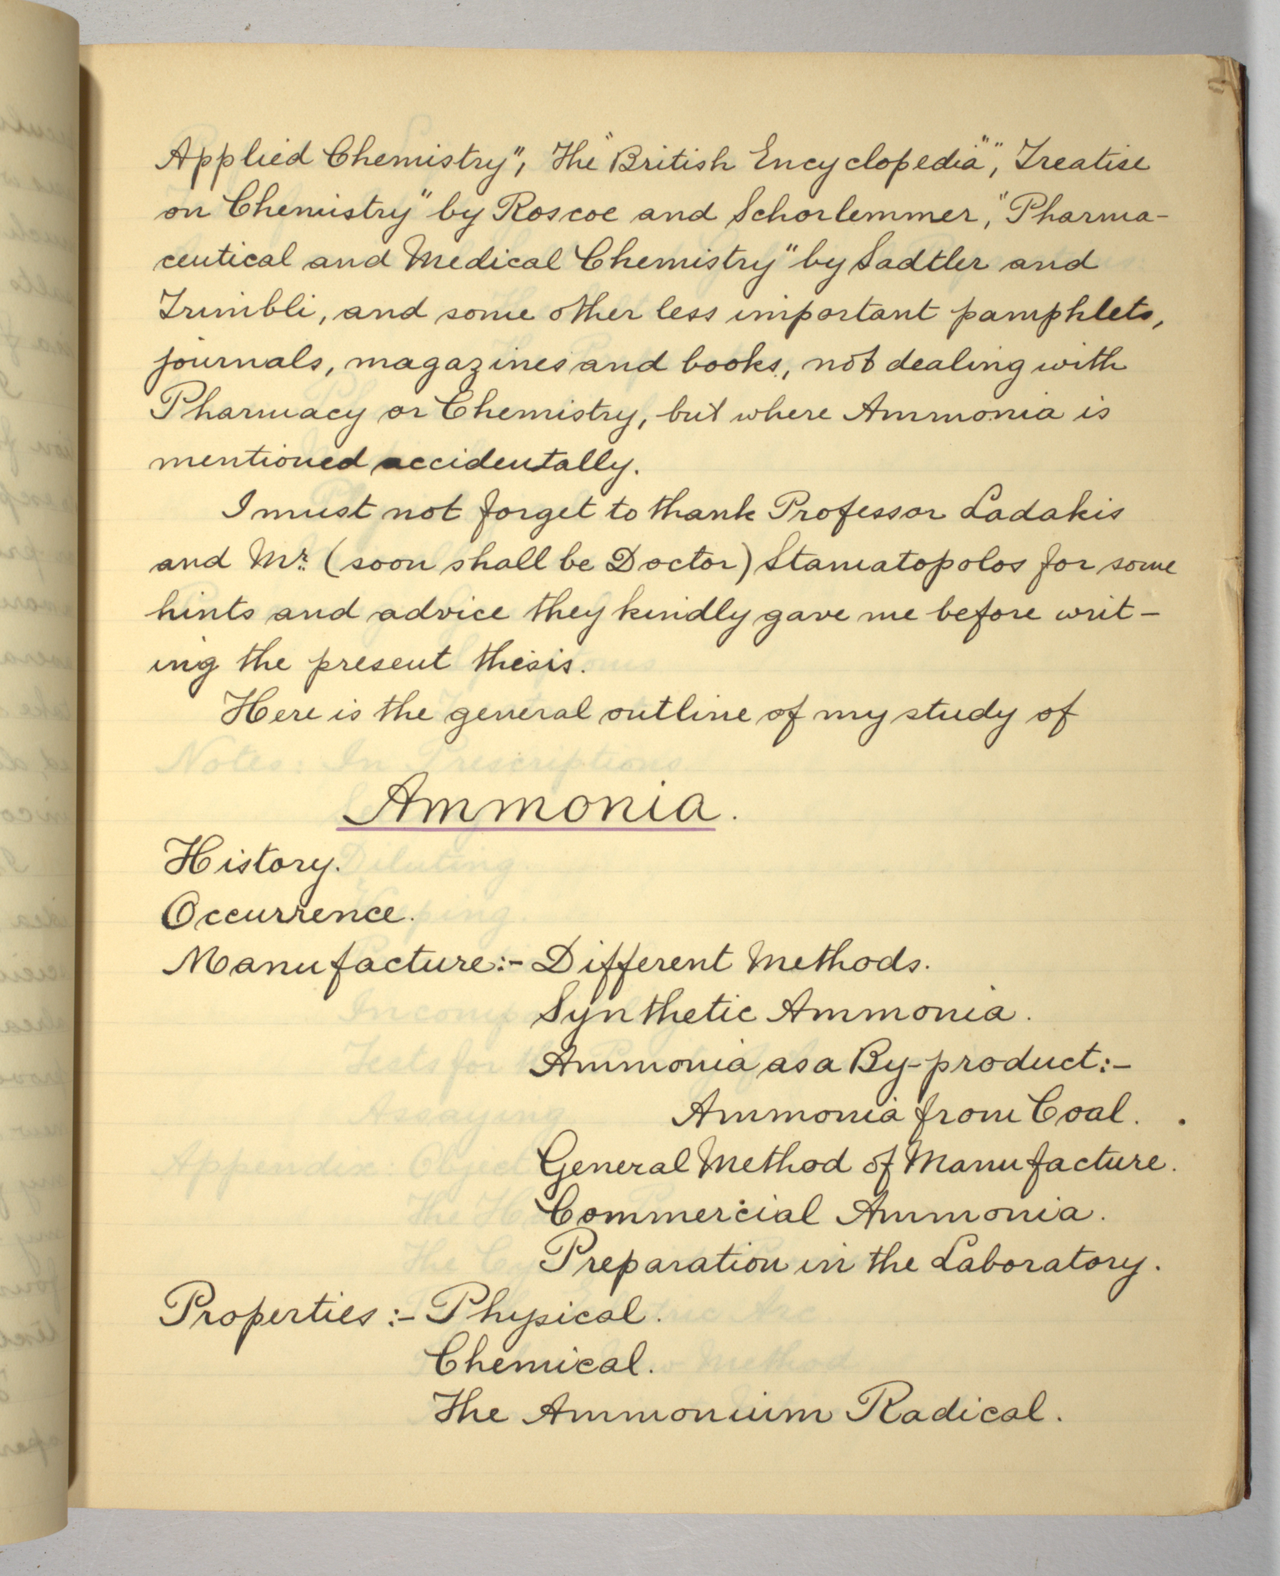 Applied Chemistry", The "British Encyclopedia", "Treatise
on Chemistry" by Roscoe and Schorlemmer, "Pharma-
ceutical and Medical Chemistry" by Sadtler and
Trimbli, and some other less important pamphlets,
journals, magazines and books, not dealing with
Pharmacy or Chemistry, but where Ammonia is
mentioned accidentally.
I must not forget to thank Professor Ladakis
and Mr. (soon shall be Doctor) Stamatopolos for some
hints and advice they kindly gave me before writ-
ing the present thesis.
Here is the general outline of my study of
Ammonia.
History.
Occurrence.
Manufacture:- Different Methods.
Synthetic Ammonia.
Ammonia as a By-product:-
Ammonia from Coal.
General Method of Manufacture.
Commercial Ammonia.
Preparation in the Laboratory.
Properties:- Physical.
Chemical.
The Ammonium Radical.